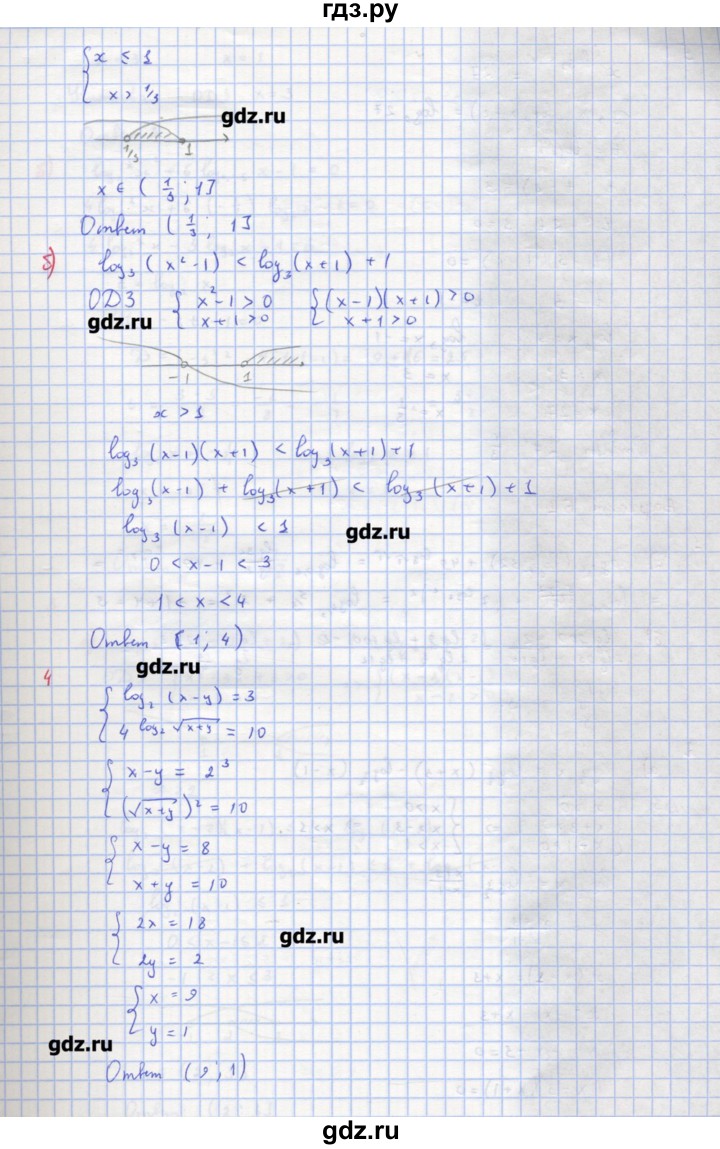 гдз.ру
{ x ≤ 1
x > 1/3
gdz.ru
1/3 1
x ∈ ( 1/3 ; 1]
Ответ ( 1/3 ; 1]
б) log₃ (x² - 1) < log₃ (x + 1) + 1
ОДЗ { x² - 1 > 0 { (x - 1)(x + 1) > 0
gdz.ru x + 1 > 0 x + 1 > 0
-1 1
x > 1
log₃ (x - 1)(x + 1) < log₃ (x + 1) + 1
log₃ (x - 1) + log₃ (x + 1) < log₃ (x + 1) + 1
log₃ (x - 1) < 1
gdz.ru
0 < x - 1 < 3
1 < x < 4
Ответ (1 ; 4)
gdz.ru
4
{ log₂ (x - y) = 3
4 log₂ √x+y = 10
{ x - y = 2³
(√x+y)² = 10
{ x - y = 8
x + y = 10
{ 2x = 18
gdz.ru
2y = 2
{ x = 9
y = 1
gdz.ru
Ответ (9 ; 1)
gdz.ru